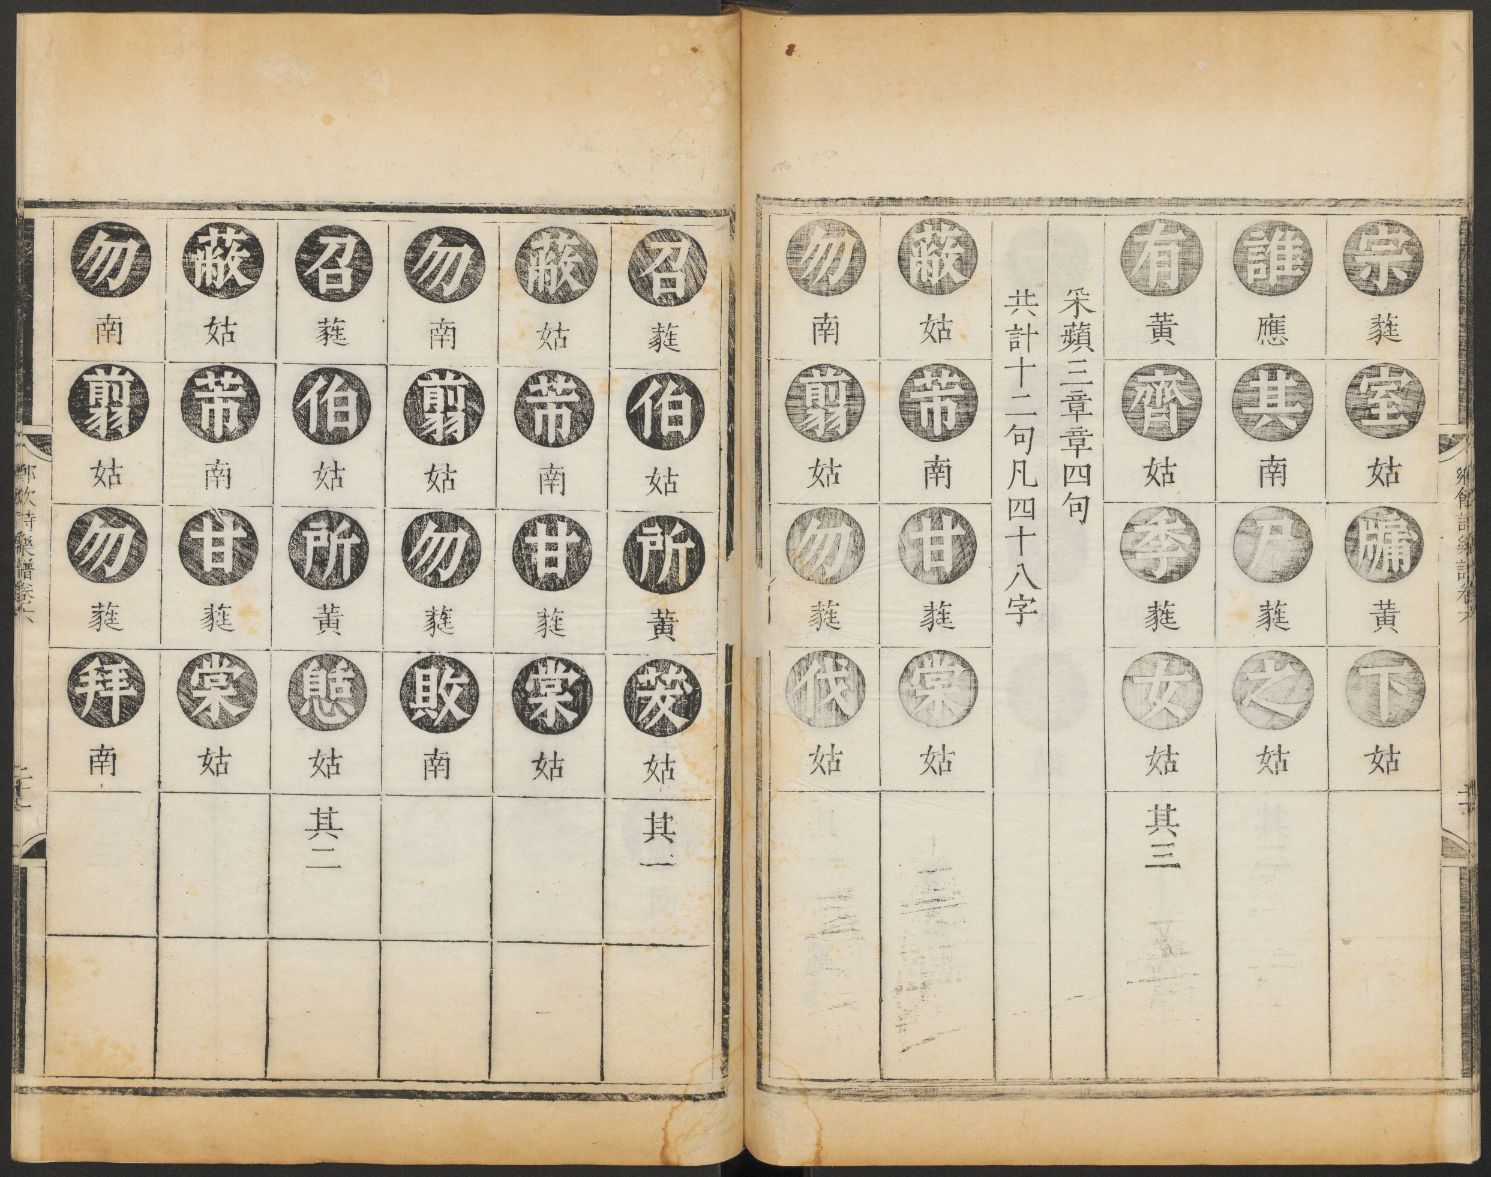 宗蕤室姑牖黃下姑
誰應其南尸蕤之姑
有黃齊姑季蕤女姑其三
采蘋三章章四句
共計十二句凡四十八字
蔽姑芾南甘蕤棠姑
勿南翦姑勿蕤伐姑
召蕤伯姑所黃茇姑其一
蔽姑芾南甘蕤棠姑
勿南翦姑勿蕤敗南
召蕤伯姑所黃憩姑其二
蔽姑芾南甘蕤棠姑
勿南翦姑勿蕤拜南
鄉飲詩樂譜卷六